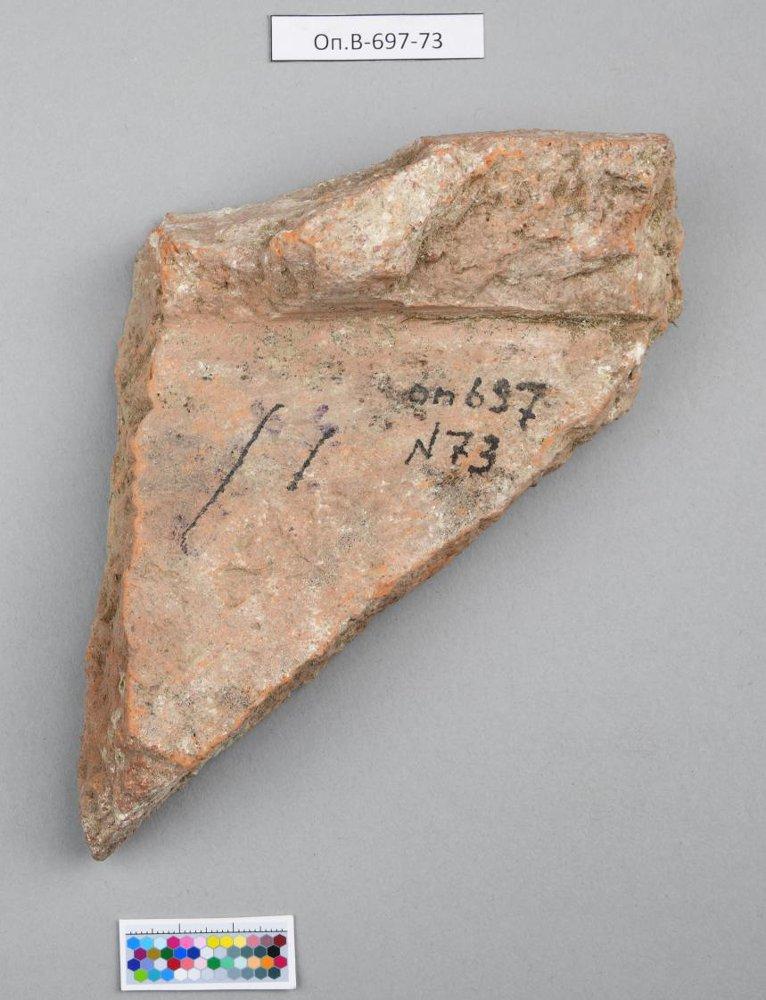 Оп.В-697-73
оп 697
N73